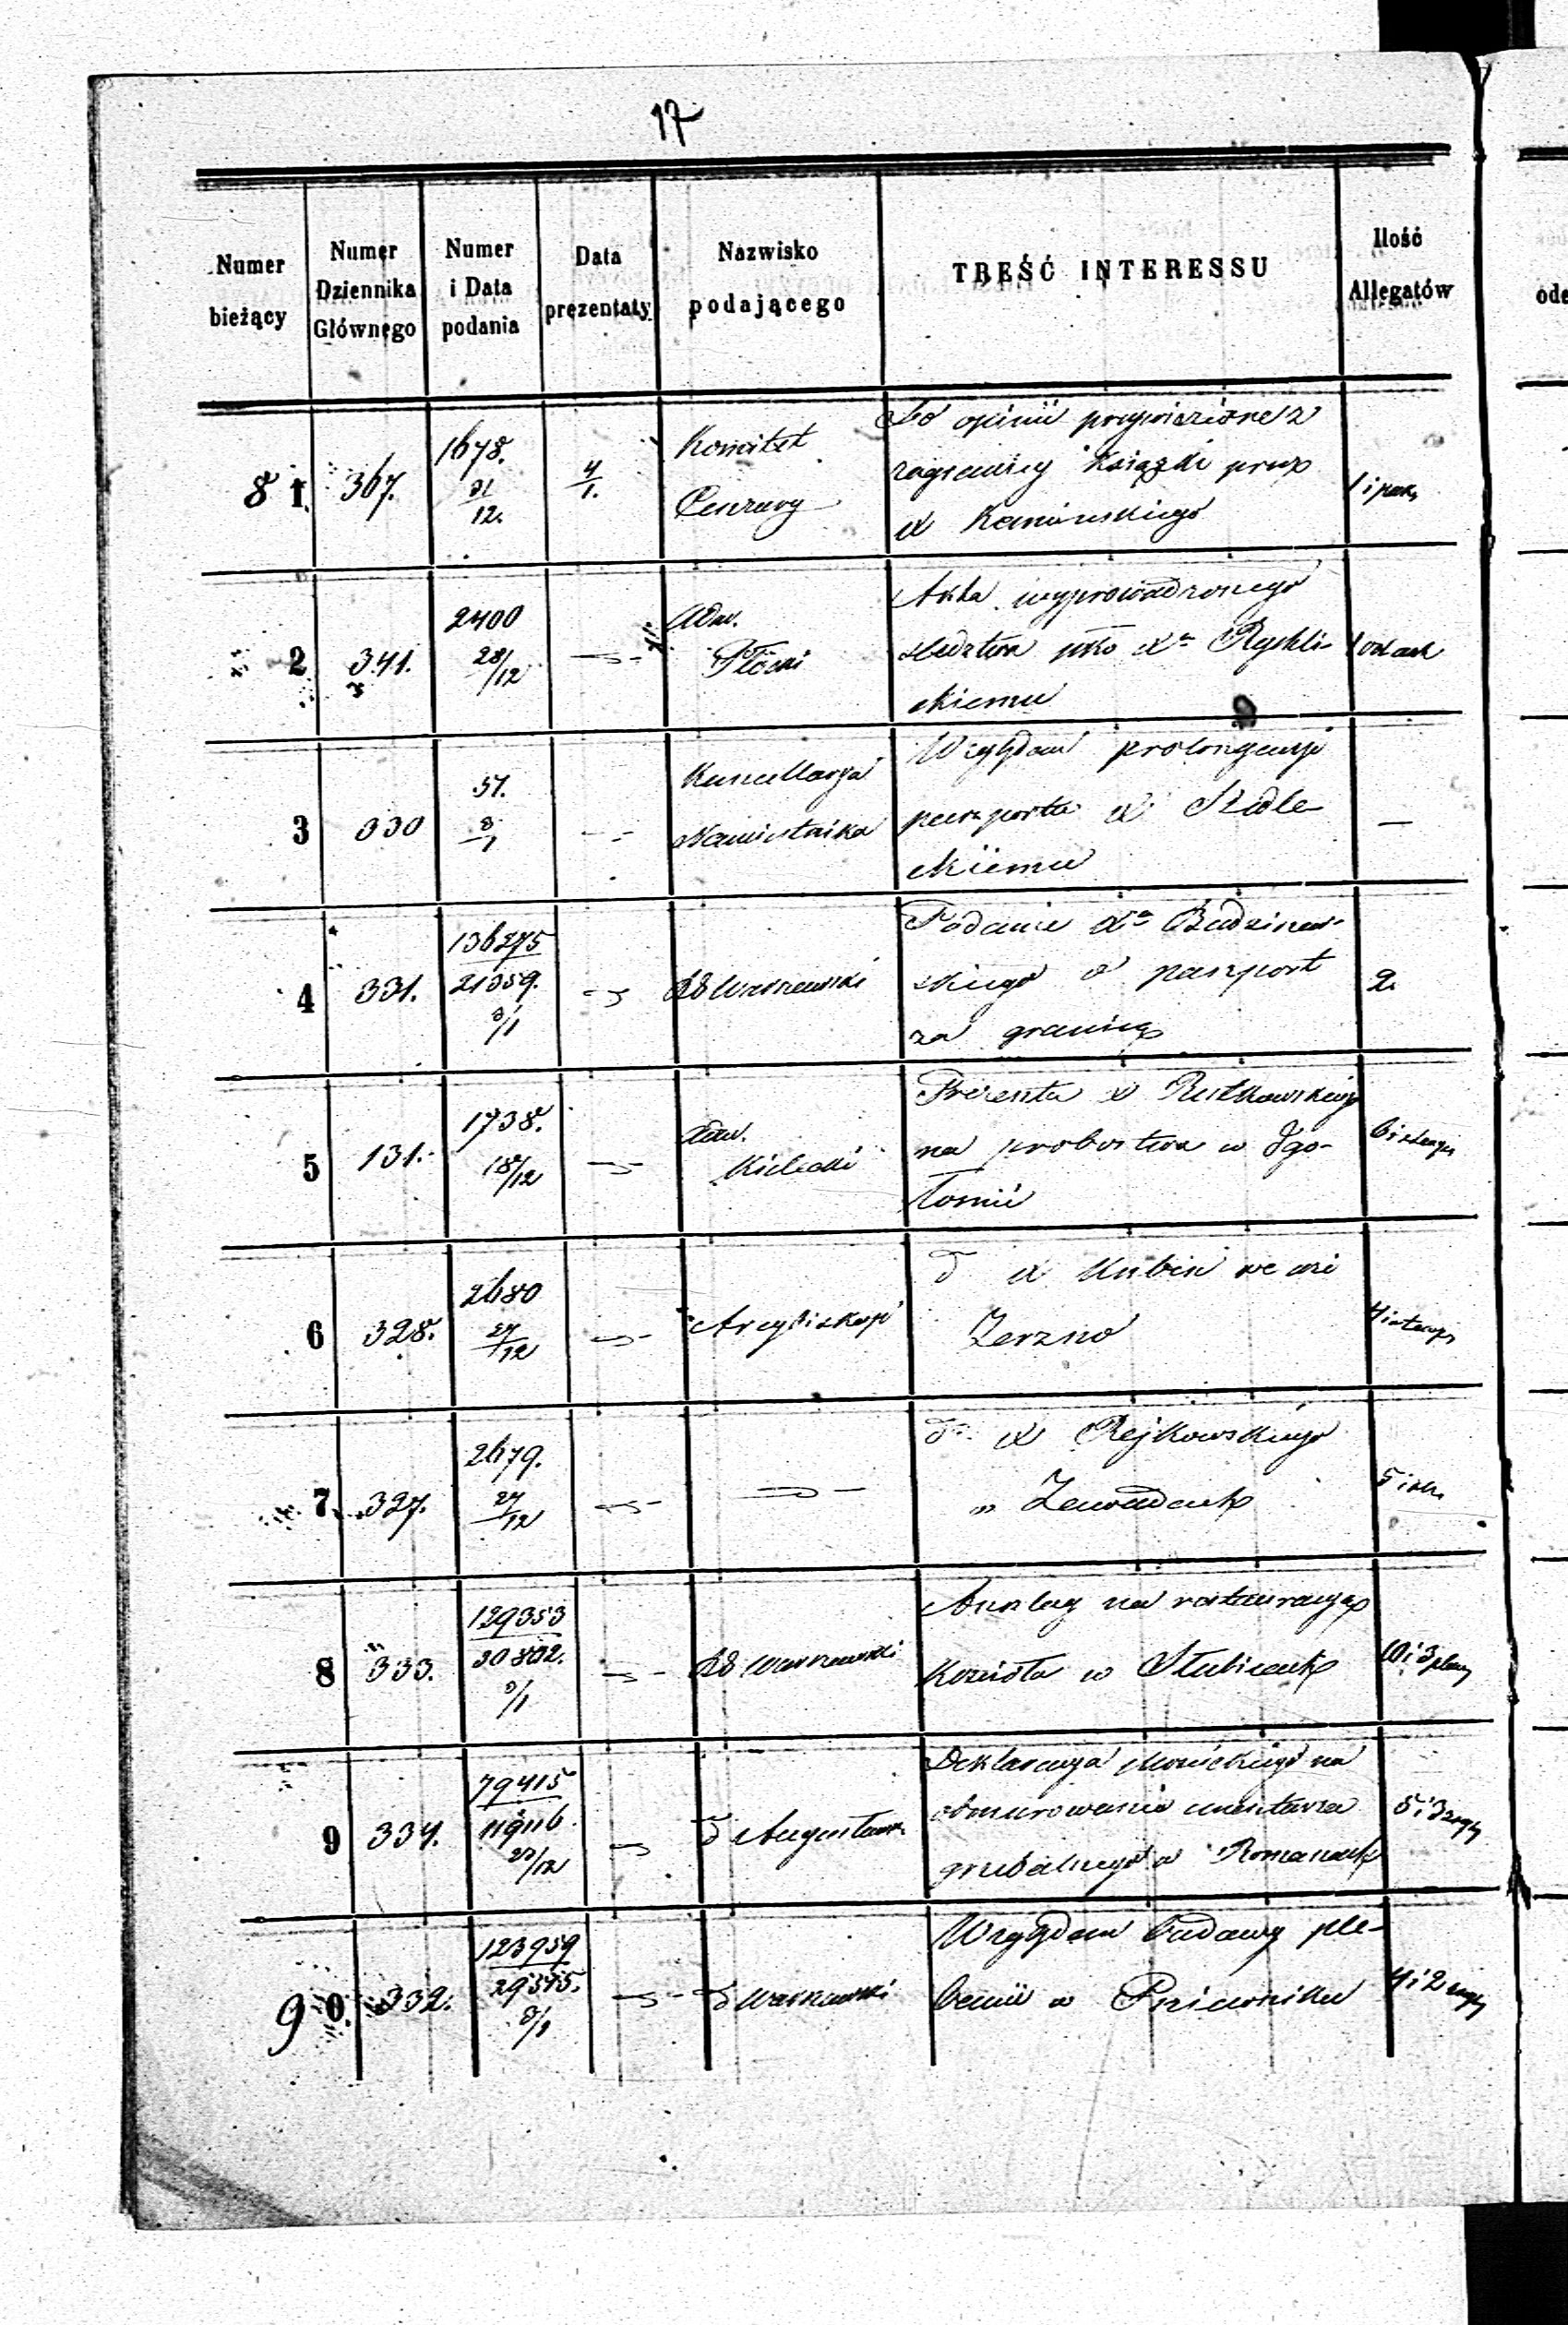 17
Numer bieżący
Numer Dziennika Głównego
Numer i Data podania
Data prezentaty
Nazwisko podającego
TREŚĆ INTERESSU
Ilość Allegatów
81. 367. 1678. 31/12. 4/1. Komitet Cenzury
Do opinii przywiezione z
zagranicy Książki przez
X Kamińskiego
1 i pak,
2 341. 2400 28/12 Adm. Płocki
Akta wyprowadzonego
śledztwa pko Xu Rychli-
ckiemu
3 330 57. 3/1 Kancellarya Namiestnika
Względem prolongacyi
paszportu X Szidle-
ckiemu
—
4 331. 136275 21359. 3/1 RG Warszawski
Podanie Xa Budzinow-
skiego o paszport
za granicę
2.
5 131. 1738. 18/12 Adm. Kielecki
Prezenta X Rutkowskiego
na probostwo w Igo-
łomii
6 328. 2680 27/12 Arcybiskup
d X Kubin we wsi
Zerzno
7. 327. 2679. 27/12
do X Rejkowskiego
„ Zawadach
8 333. 129353 30802. 3/1 RG Warszawski
Anszlag na restauracyę
Kościoła w Słubicach
9 334. 79415 119116 23/12 d Augustow.
Deklaracya Mościckiego na
obmurowanie cmentarza
grzebalnego w Romanach
90. 332. 123959 29375. 3/1 d Warszawski
Względem budowy ple-
banii w Pniewniku